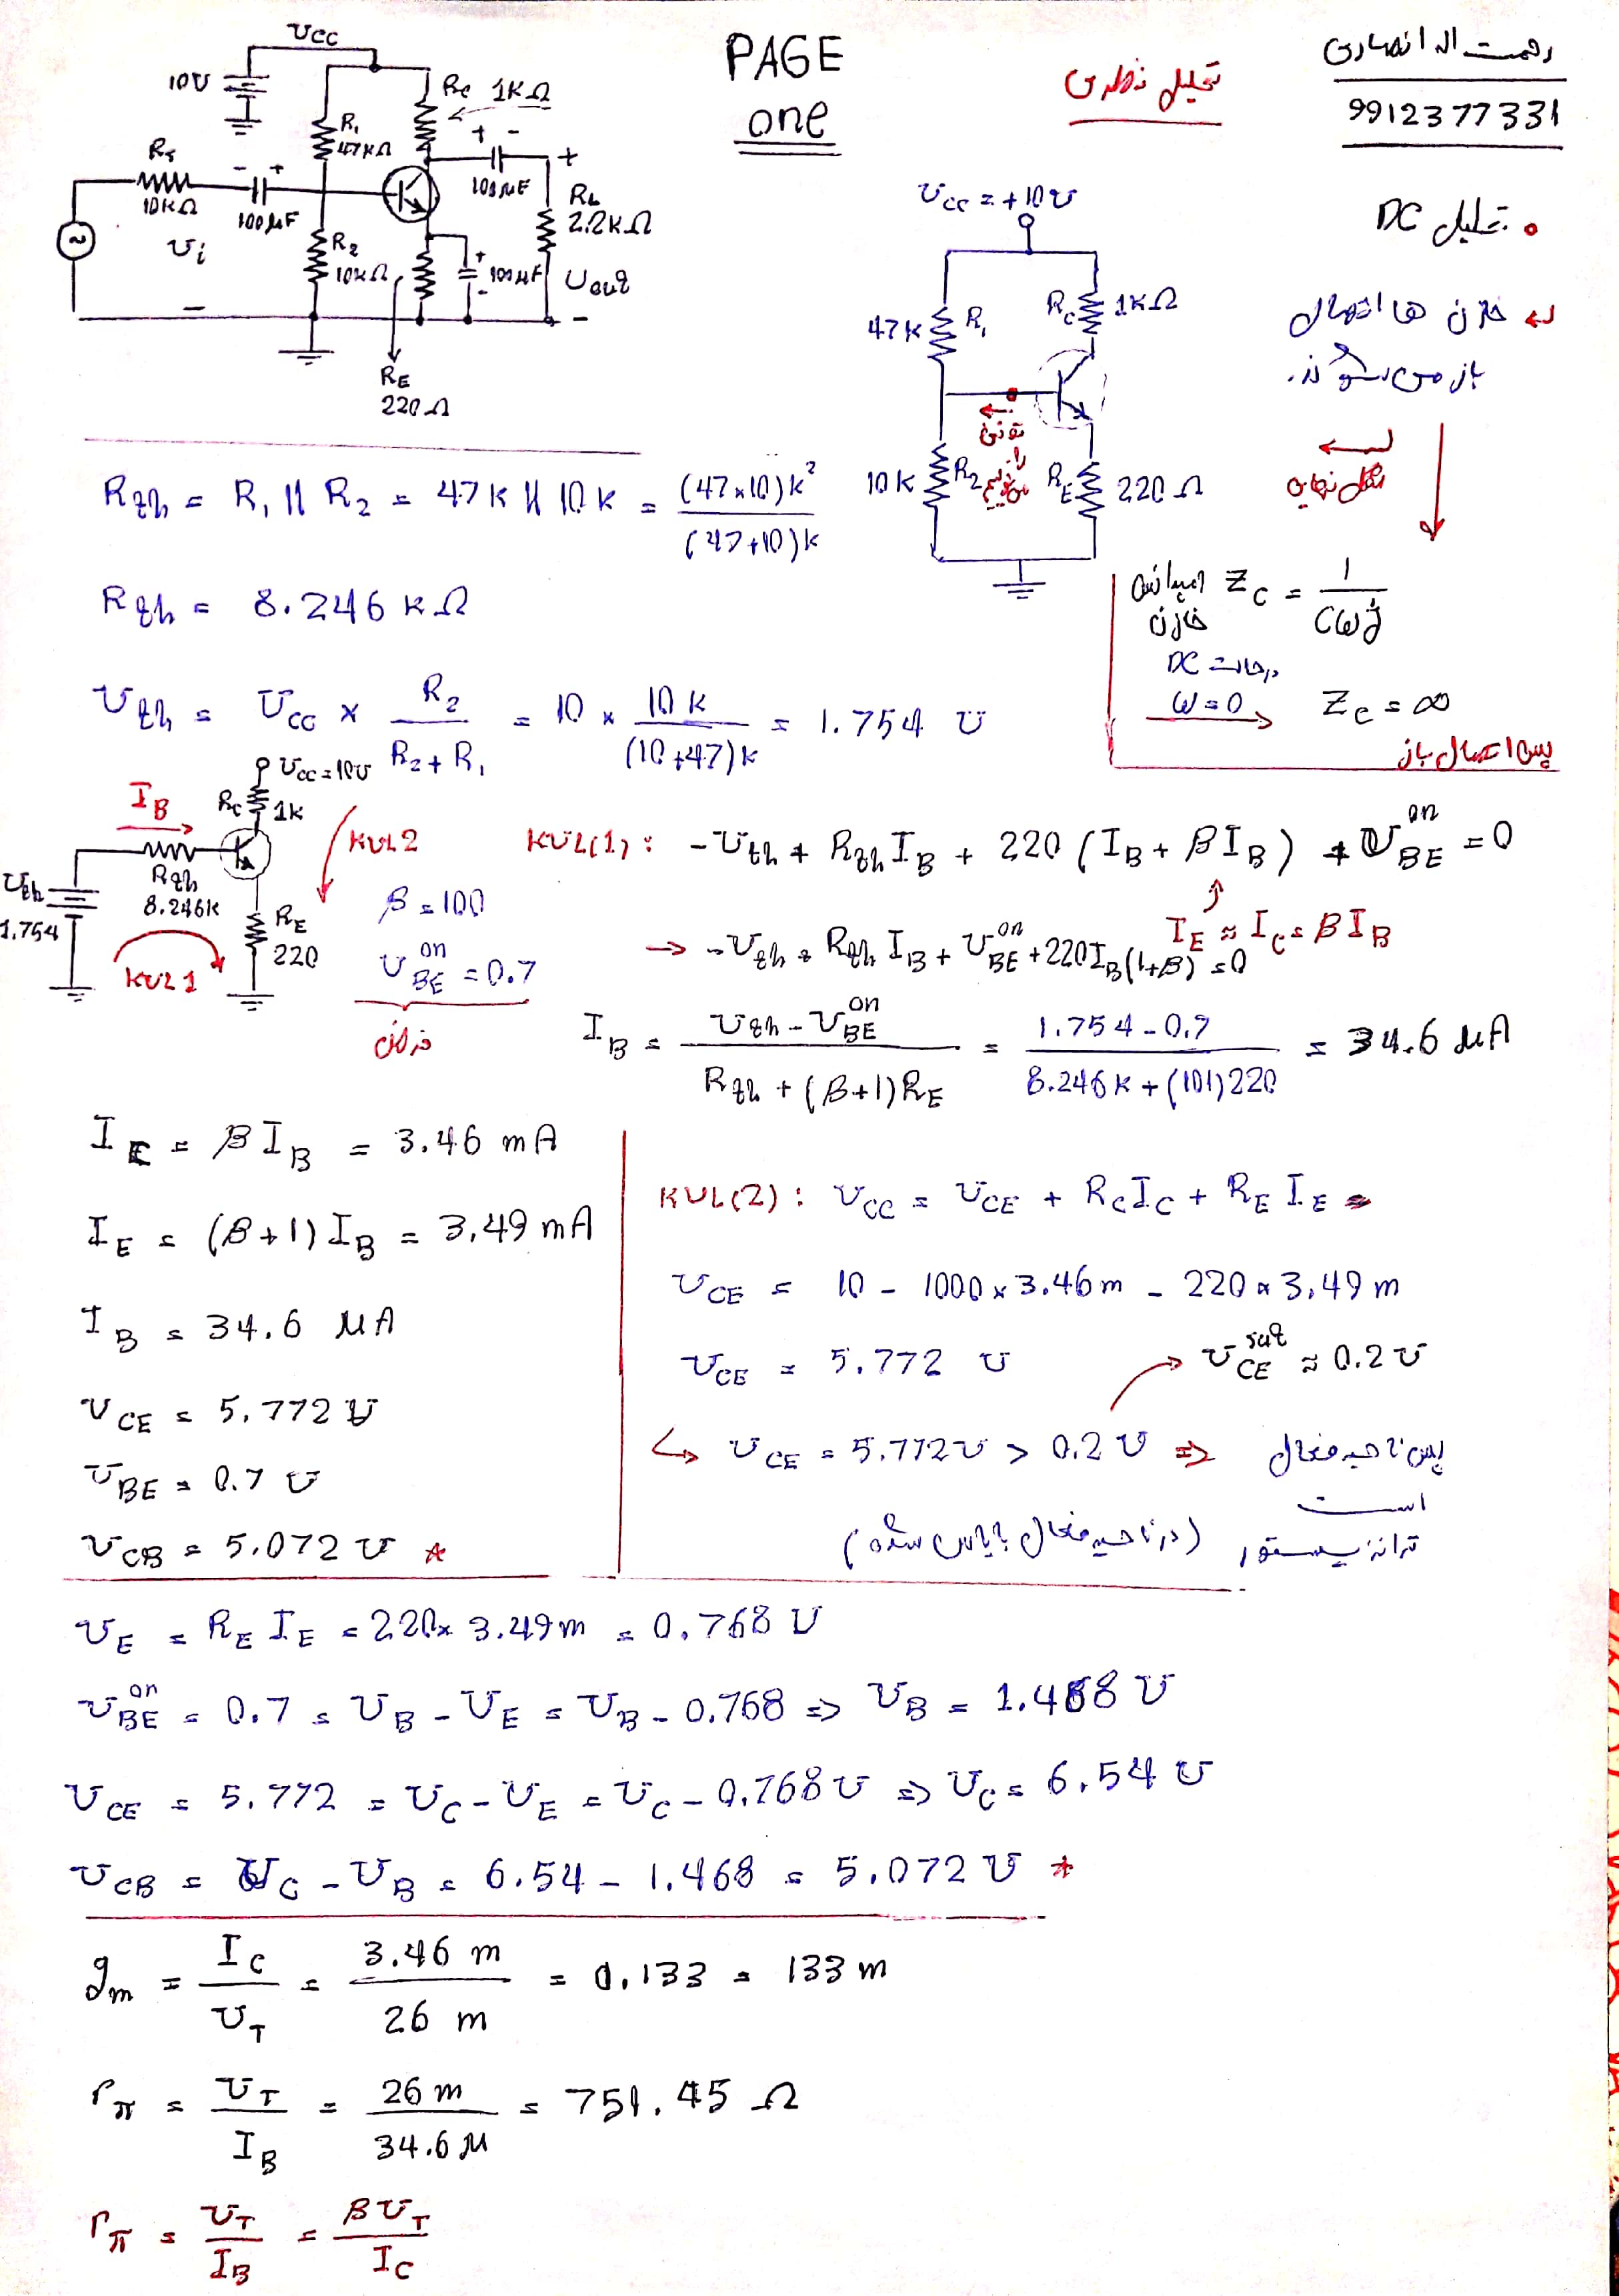 PAGE
one
رحمت اله انصاری
9912377331
تحلیل نظری
Vcc
10V
Rc 1KΩ
R1
47KΩ
Rs
10KΩ
100μF
100μF
RL
2.2KΩ
R2
10KΩ
100μF
Vi
Vout
RE
220Ω
• تحلیل DC
خازن ها اتصال
باز می شوند.
شکل نهایی
Vcc = +10V
47K R1
Rc 1KΩ
10K R2
RE 220Ω
تونن
می زنیم
امپدانس خازن Zc = 1 / Cωj
درحالت DC
ω=0 → Zc = ∞
پس اتصال باز
Rth = R1 || R2 = 47K || 10K = (47×10)K² / (47+10)K
Rth = 8.246 KΩ
Vth = Vcc × R2 / (R2 + R1) = 10 × 10K / (10+47)K = 1.754 V
Vcc = 10V
IB
Rc 1K
KVL2
Vth
1.754
Rth
8.246K
RE
220
KVL1
β = 100
VBE on = 0.7
فرض
KVL(1): -Vth + Rth IB + 220 (IB + βIB) + VBE on = 0
IE ≈ Ic = βIB
→ -Vth + Rth IB + VBE on + 220IB(1+β) = 0
IB = (Vth - VBE on) / (Rth + (β+1)RE) = (1.754 - 0.7) / (8.246K + (101)220) = 34.6 μA
IC = βIB = 3.46 mA
IE = (β+1) IB = 3.49 mA
IB = 34.6 μA
VCE = 5.772 V
VBE = 0.7 V
VCB = 5.072 V *
KVL(2): Vcc = VCE + RcIc + RE IE
VCE = 10 - 1000×3.46m - 220×3.49m
VCE = 5.772 V
VCE sat ≈ 0.2 V
↳ VCE = 5.772V > 0.2V ⇒ پس ناحیه فعال
است
ترانزیستور (در ناحیه فعال بایاس شده)
VE = RE IE = 220×3.49m = 0.768 V
VBE on = 0.7 = VB - VE = VB - 0.768 ⇒ VB = 1.468 V
VCE = 5.772 = VC - VE = VC - 0.768V ⇒ VC = 6.54 V
VCB = VC - VB = 6.54 - 1.468 = 5.072 V *
gm = Ic / VT = 3.46 m / 26 m = 0.133 = 133 m
rπ = VT / IB = 26 m / 34.6 μ = 751.45 Ω
rπ = VT / IB = βVT / IC